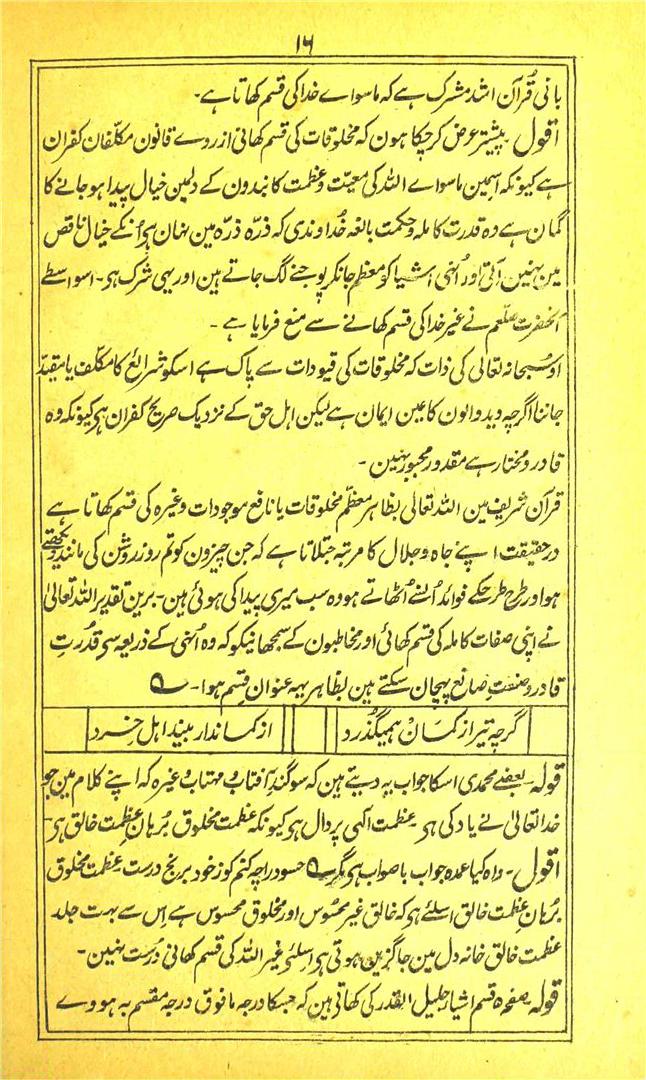 ۱۶
بانی قُرآن اشد مشرک ہے کہ ماسواے خدا کی قسم کھاتا ہے۔
اقول۔ پیشتر عرض کرچکا ہون کہ مخلوقات کی قسم کھانی ازروے قانون مکلّفان کفران
ہے کیونکہ اسمین ماسواے اللہ کی معیّت وعظمت کا بندون کے دلمین خیال پیدا ہو جانے کا
گمان ہے وہ قدرت کاملہ وحکمت بالغہ خُداوندی کہ ذرّہ ذرّہ مین نہان ہی اُنکے خیال ناقص
مین نہین آتی اور اُنہی اشیا کو معظم جانکر پوجنے لگ جاتے ہین اور یہی شرک ہی۔ اسواسطے
آنحضرت صلعم نے غیر خدا کی قسم کھانے سے منع فرمایا ہے۔
اوسبحانہ تعالیٰ کی ذات کہ مخلوقات کی قیودات سے پاک ہے اسکو شرائع کا مکلّف یا مقیّد
جاننا اگرچہ ویدوالون کا عین ایمان ہے لیکن اہل حق کے نزدیک صریح کفران ہی کیونکہ وہ
قادر ومختار ہے مقدور مجبور نہین۔
قرآن شریف مین اللہ تعالیٰ بظاہر معظّم مخلوقات یا نافع موجودات وغیرہ کی قسم کھاتا ہے
درحقیقت اپنے جاہ وجلال کا مرتبہ جتلاتا ہے کہ جن چیزون کو تم روز روشن کی مانند دیکھتے
ہو اور طرح طرحکے فوائد اُنسے اُٹھاتے ہو وہ سب میری پیدا کی ہوئی ہین۔ برین تقدیر اللہ تعالیٰ
نے اپنی صفات کاملہ کی قسم کھائی اور مخاطبون کے سمجھانیکو کہ وہ اُنہی کے ذریعہ سے قُدرتِ
قادر وصنعتِ صانع پہچان سکتے ہین بظاہر یہہ عنوان قسم ہوا۔
گرچہ تیر از کمان ہمیگذرد
از کماندار بیند اہل خرد
قولہ۔ بعضے محمدی اسکا جواب یہ دیتے ہین کہ سوگند آفتاب و مہتاب وغیرہ کہ اپنے کلام مین جو
خدا تعالیٰ نے یاد کی ہی عظمت الٰہی پر دال ہی کیونکہ عظمت مخلوق بُرہان عظمت خالق ہی۔
اقول۔ واہ کیا عمدہ جواب باصواب ہی مگر حسود را چہ کنم کو ز خود برنج درست عظمت مخلوق
بُرہان عظمت خالق اسلئے ہی کہ خالق غیر محسوس اور مخلوق محسوس ہے اِس سے بہت جلد
عظمت خالق خانہ دل مین جاگزین ہوتی ہی اسلئی غیر اللہ کی قسم کھانی دُرست نہین۔
قولہ۔ صفحہ ہ قسم اشیاء جلیل القدر کی کھاتی ہین کہ جسکا درجہ مافوق درجہ مقسم بہ ہووے